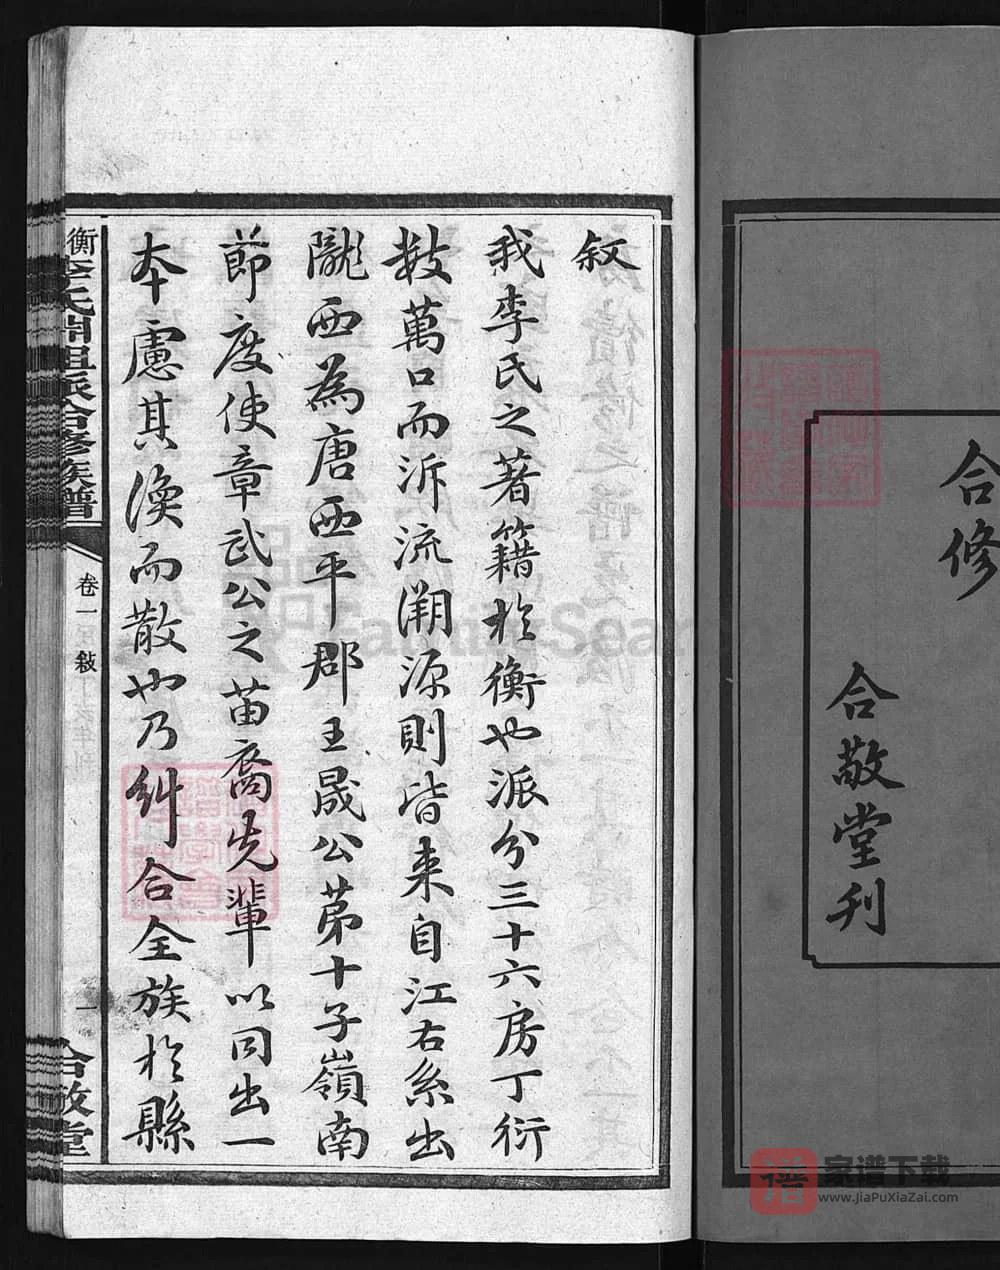 合修
合敬堂刊
叙
我李氏之著籍於衡也派分三十六房丁衍
数萬口而泝流溯源則皆来自江右系出
隴西為唐西平郡王晟公苐十子嶺南
節度使章武公之苗裔先輩以同出一
本慮其渙而散也乃糾合全族於縣
衡李氏開祖派合修族譜
卷一
敍
一
合敬堂
FamilySearch
譜
家谱下载
www.JiaPuXiaZai.com